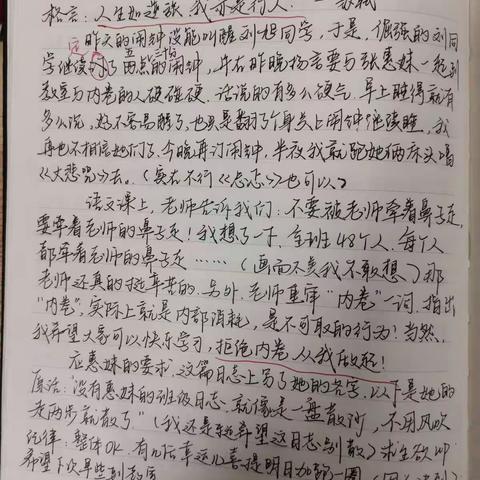 格言:人生如逆旅,我亦是行人. ——苏轼
昨天的闹钟没能叫醒刘相同学,于是,倔强的刘同
学继续订了五点的闹钟,并在昨晚扬言要与张惠妹一起到
教室与内卷的人硬碰硬.话说的有多么硬气,早上睡得就有
多么沉,好不容易醒了,也只是翻了个身关上闹钟继续睡,我
再也不相信她们了.今晚再订闹钟,半夜我就跑她俩床头唱
《大悲咒》去。(实在不行《忐忑》也可以)
语文课上,老师告诉我们:不要被老师牵着鼻子走,
要牵着老师的鼻子走!我想了一下,全班48个人,每个人
都牵着老师的鼻子走……(画面不美我不敢想)那
老师还真的挺辛苦的.另外,老师重审“内卷”一词,指出
“内卷”,实际上就是内部消耗,是不可取的行为!当然,
我希望大家可以快乐学习,拒绝内卷,从我做起!
应惠妹的要求,这篇日志上写了她的名字,以下是她的
原话:“没有惠妹的班级日志,就像是一盘散沙,不用风吹
走两步就散了”(我还是希望这日志别散)求生欲
纪律:整体OK,有几后桌这儿喜提明日加跑一圈
希望下次早些到教室